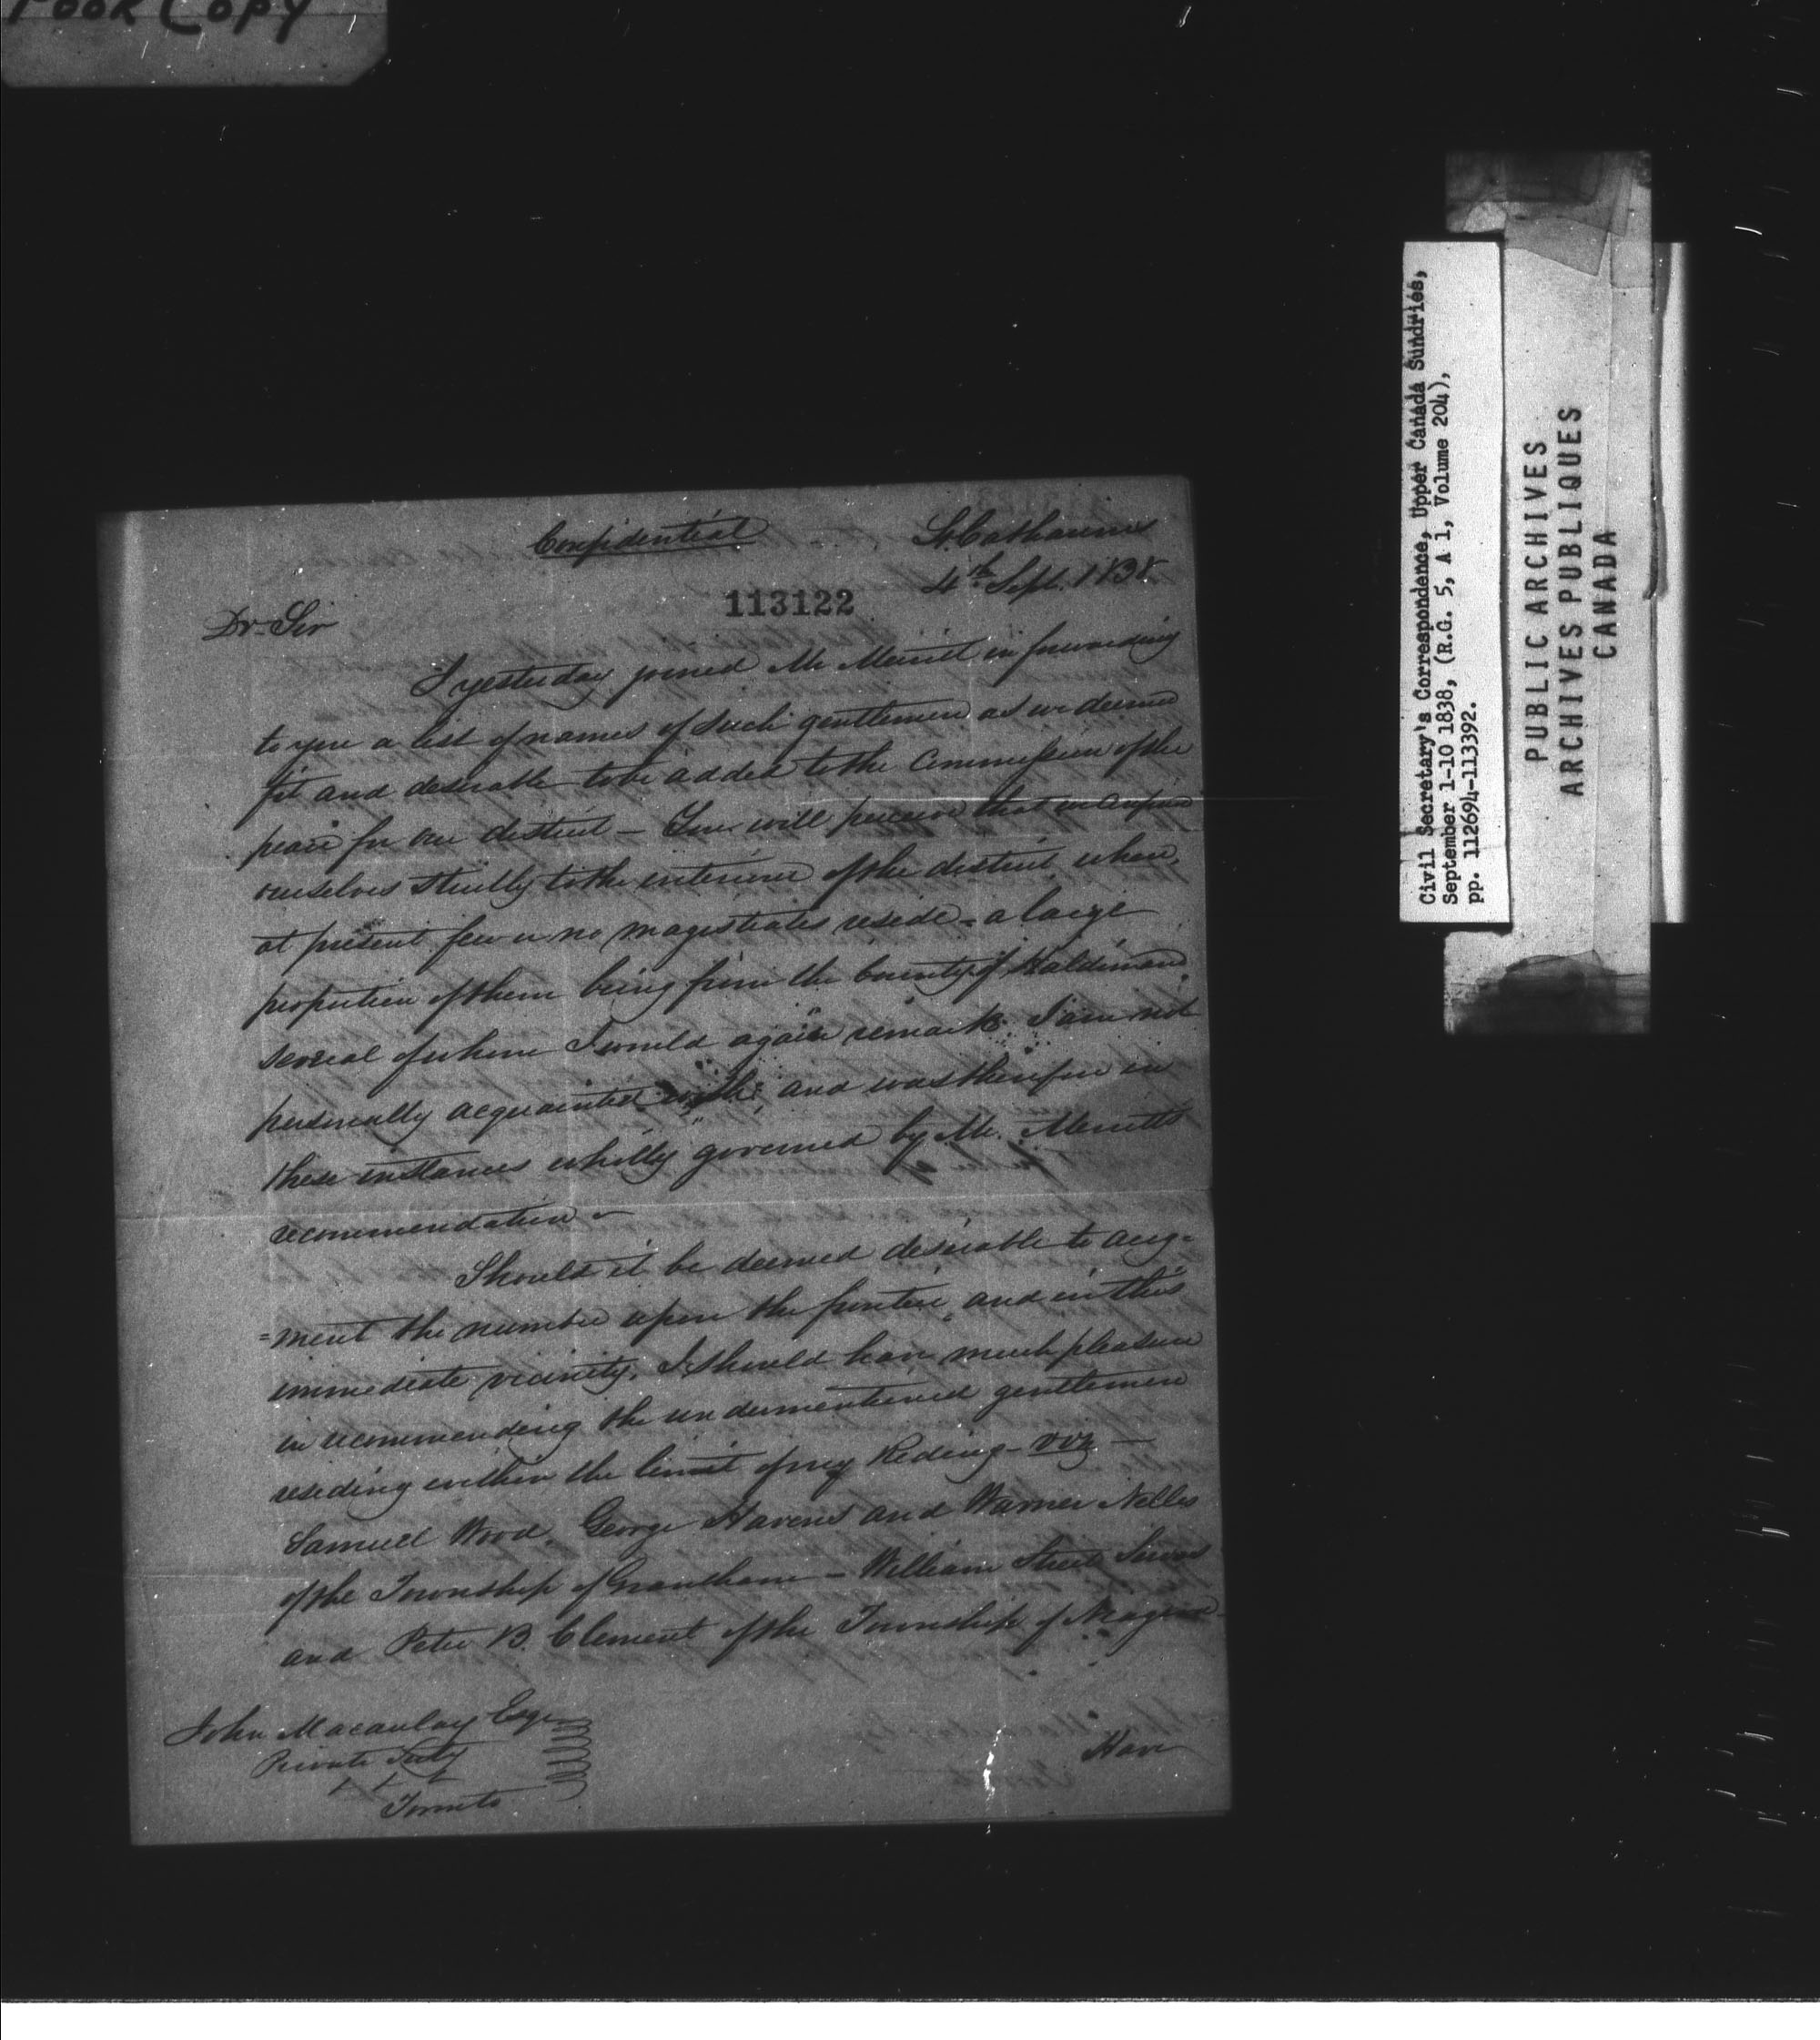 Poor Copy
Confidential
St. Catharines
4th Sept. 1838
113122
Dr. Sir
I yesterday joined Mr Merritt in forwarding
to you a list of names of such gentlemen as we deemed
fit and desirable to be added to the Commission of the
peace for our district — You will perceive that we confine
ourselves strictly to the interior of the district, where
at present few or no magistrates reside – a large
proportion of them being from the County of Haldimand
several of whom I would again remark I am not
personally acquainted with, and was therefore in
these instances wholly governed by Mr. Merritts
recommendation –
Should it be deemed desirable to aug=
=ment the number upon the frontier, and in this
immediate vicinity, I should have much pleasure
in recommending the undermentioned gentlemen
residing within the limit of my Riding – viz —
Samuel Wood, George Havens and Warner Nelles
of the Township of Grantham – William Street Servos
and Peter B. Clement of the Township of Niagara –
John Macaulay Esqr
Private Secty
Toronto
Have
Civil Secretary's Correspondence, Upper Canada Sundries,
September 1-10 1838, (R.G. 5, A 1, Volume 204),
pp. 112694-113392.
PUBLIC ARCHIVES
ARCHIVES PUBLIQUES
CANADA